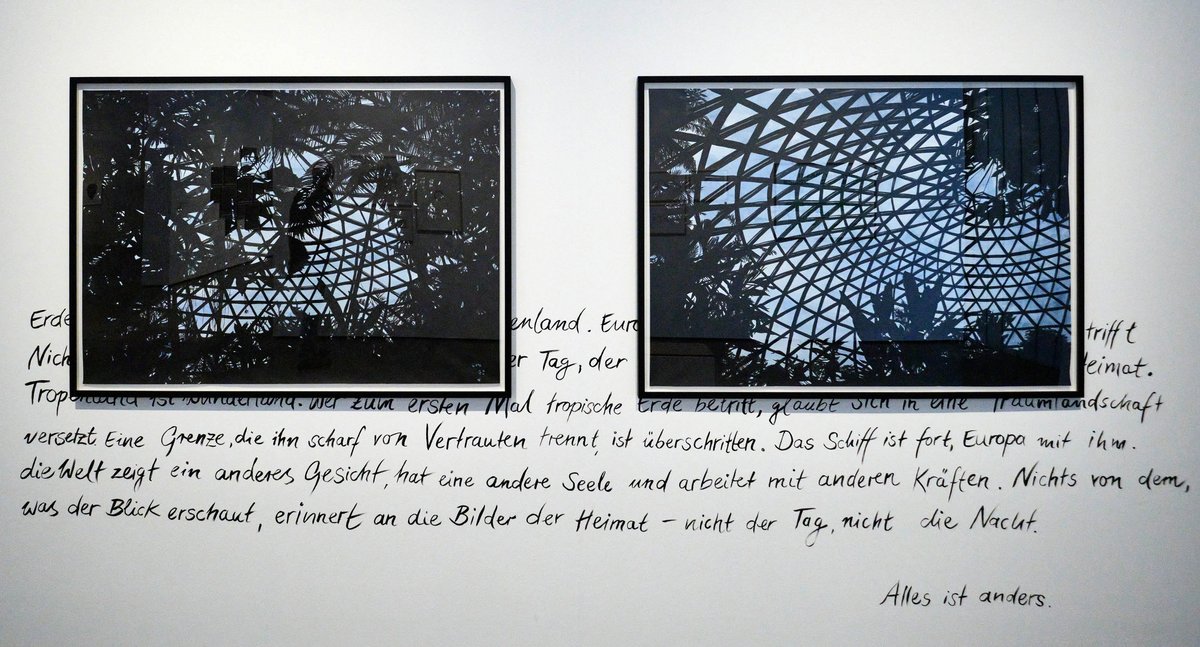 Erde enland. Euro trifft
Nich er Tag, der eimat.
Tropenland ist Wunderland. Wer zum ersten Mal tropische Erde betritt, glaubt sich in eine Traumlandschaft
versetzt. Eine Grenze, die ihn scharf von Vertrauten trennt, ist überschritten. Das Schiff ist fort, Europa mit ihm.
die Welt zeigt ein anderes Gesicht, hat eine andere Seele und arbeitet mit anderen Kräften. Nichts von dem,
was der Blick erschaut, erinnert an die Bilder der Heimat – nicht der Tag, nicht die Nacht.
Alles ist anders.